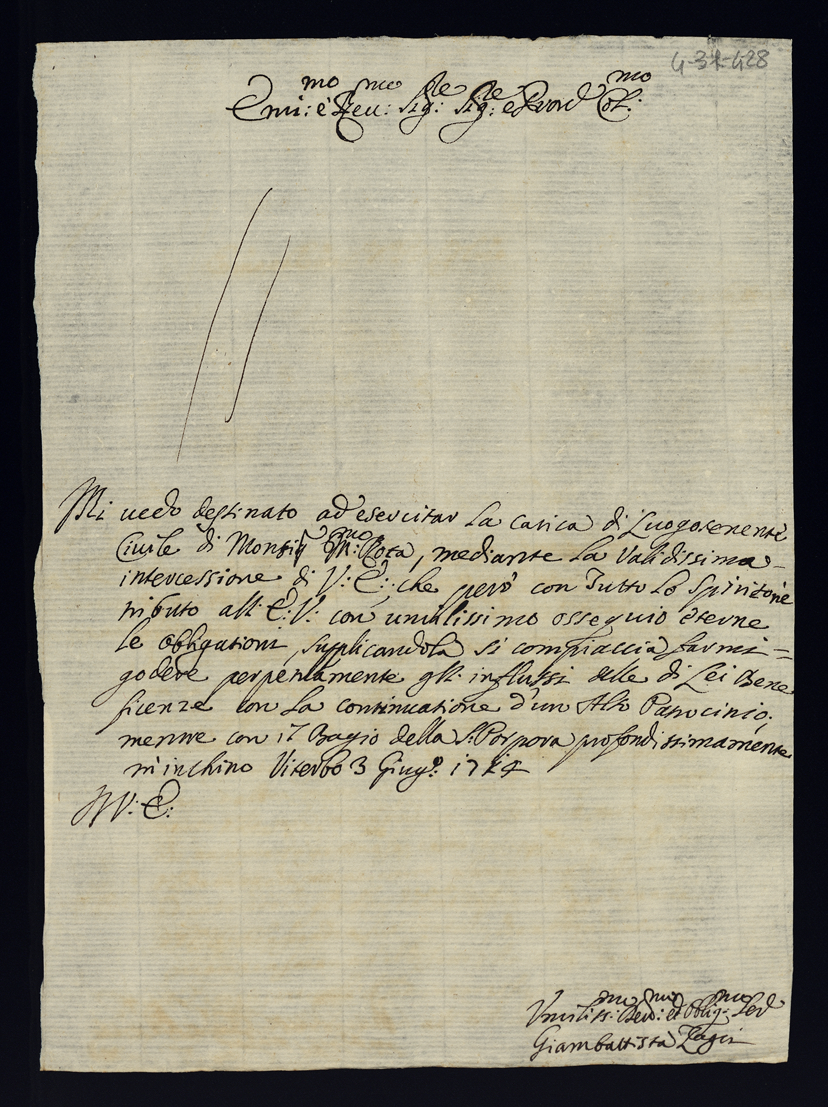 4-31-428
Emi:mo e Reu:mo Sig:re Sig:re e Pron Col:mo
Mi uedo destinato ad' esercitar La carica di Luogotenente
Civile di Monsig.r Ill:mo Rota, mediante La Validissima
intercessione di V: E:, che però con Tutto Lo Spirito ne
tributo all' E: V: con umilissimo ossequio eterne
le obligationi, supplicandola si compiaccia farmi
godere perpetuamente gl' influssi delle di Lei Bene
ficenze con La continuatione d'un Alto Patrocinio;
mentre con il Bagio della S. Porpora profondissimamente
m' inchino Viterbo 3 Giug.o 1724
D V: E:
Umiliss:mo Deuo:mo et Oblig:mo Ser
Giambattista